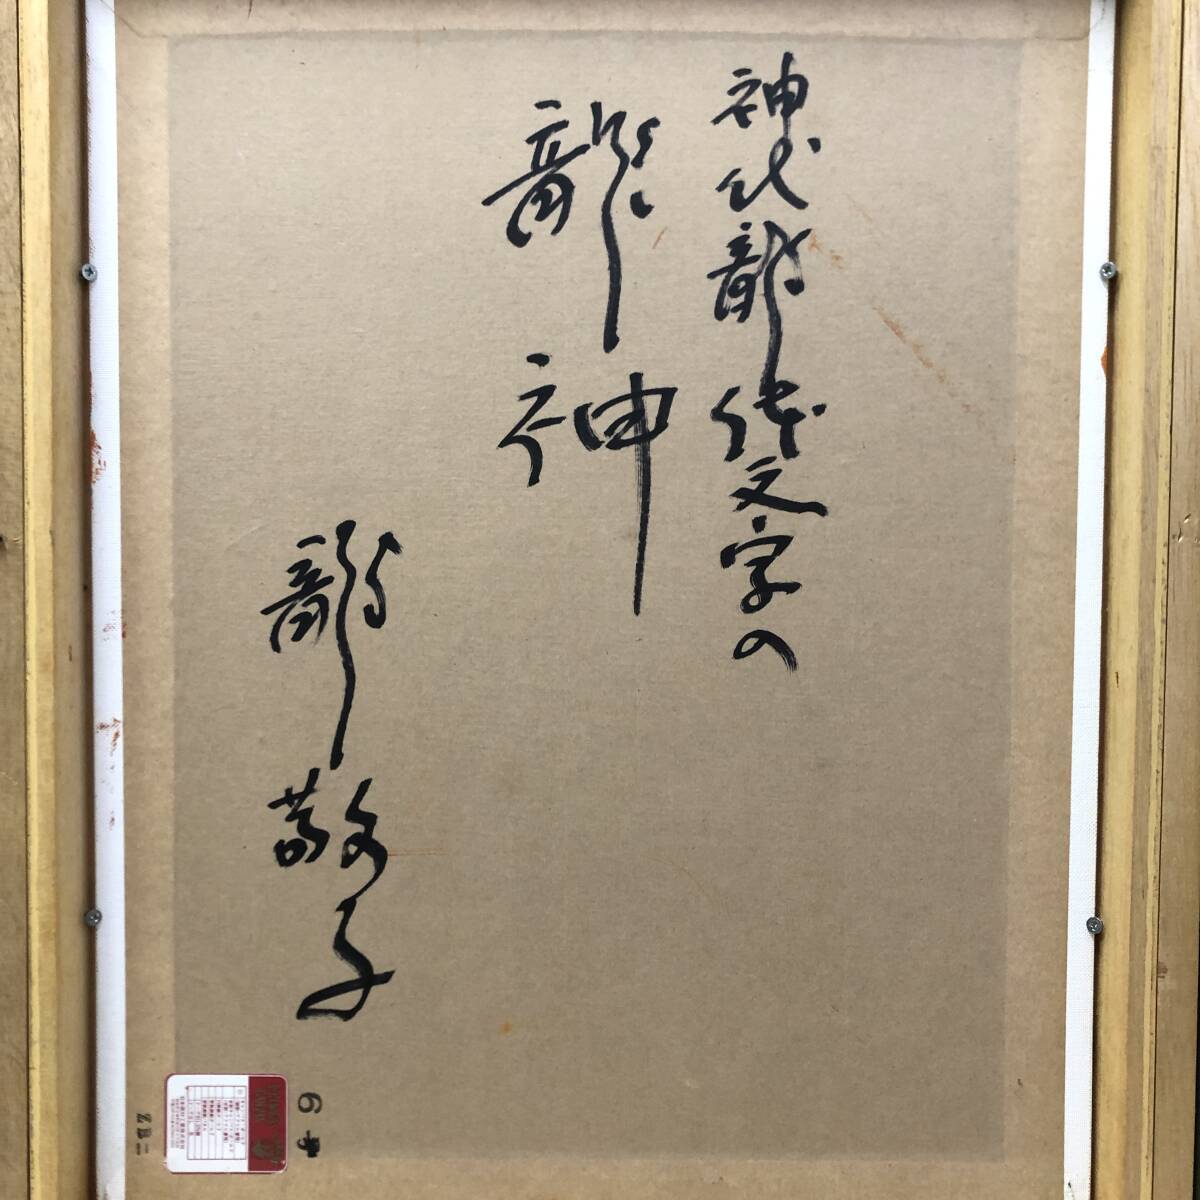 神代龍体文字の
龍神
龍敬子
6号